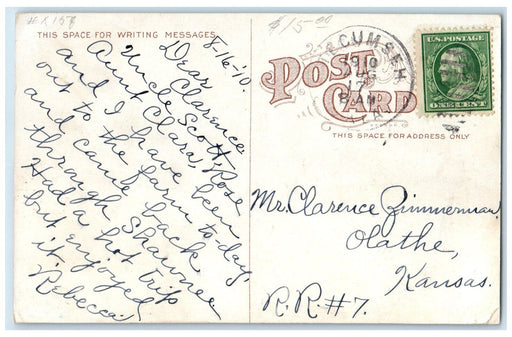 # X157
$15.00
THIS SPACE FOR WRITING MESSAGES
8-16-'10.
Dear Clarence
Uncle Scott, Rose
Aunt Clara,
and I have been
out to the farm to-day,
and came back
through Shawnee
Had a hot trip
but enjoyed
it.
Rebecca.
TECUMSEH
1910
AUG
17
8-AM
POST CARD
THIS SPACE FOR ADDRESS ONLY
U.S. POSTAGE
ONE CENT
Mr. Clarence Zimmerman
Olathe,
Kansas.
R.R.#7.